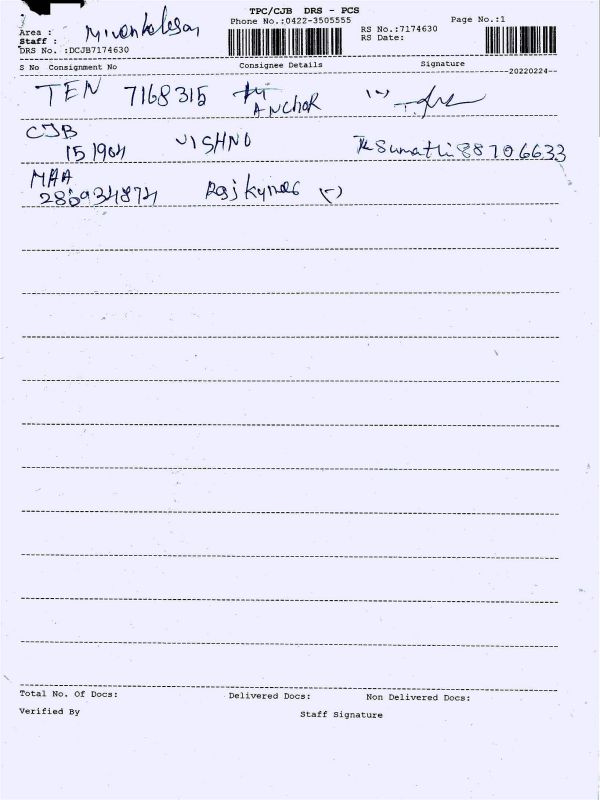 TPC/CJB DRS - PCS
Phone No.:0422-3505555 Page No.:1
Area :
Staff :
RS No.:7174630
RS Date:
DRS No. :DCJB7174630
S No Consignment No Consignee Details Signature
20220224
TEN 7168315 ANCHOR
CJB
151904 VISHNU R Sumathi 88706633
MAA
286934874 Rajkumar (-)
Total No. Of Docs: Delivered Docs: Non Delivered Docs:
Verified By Staff Signature